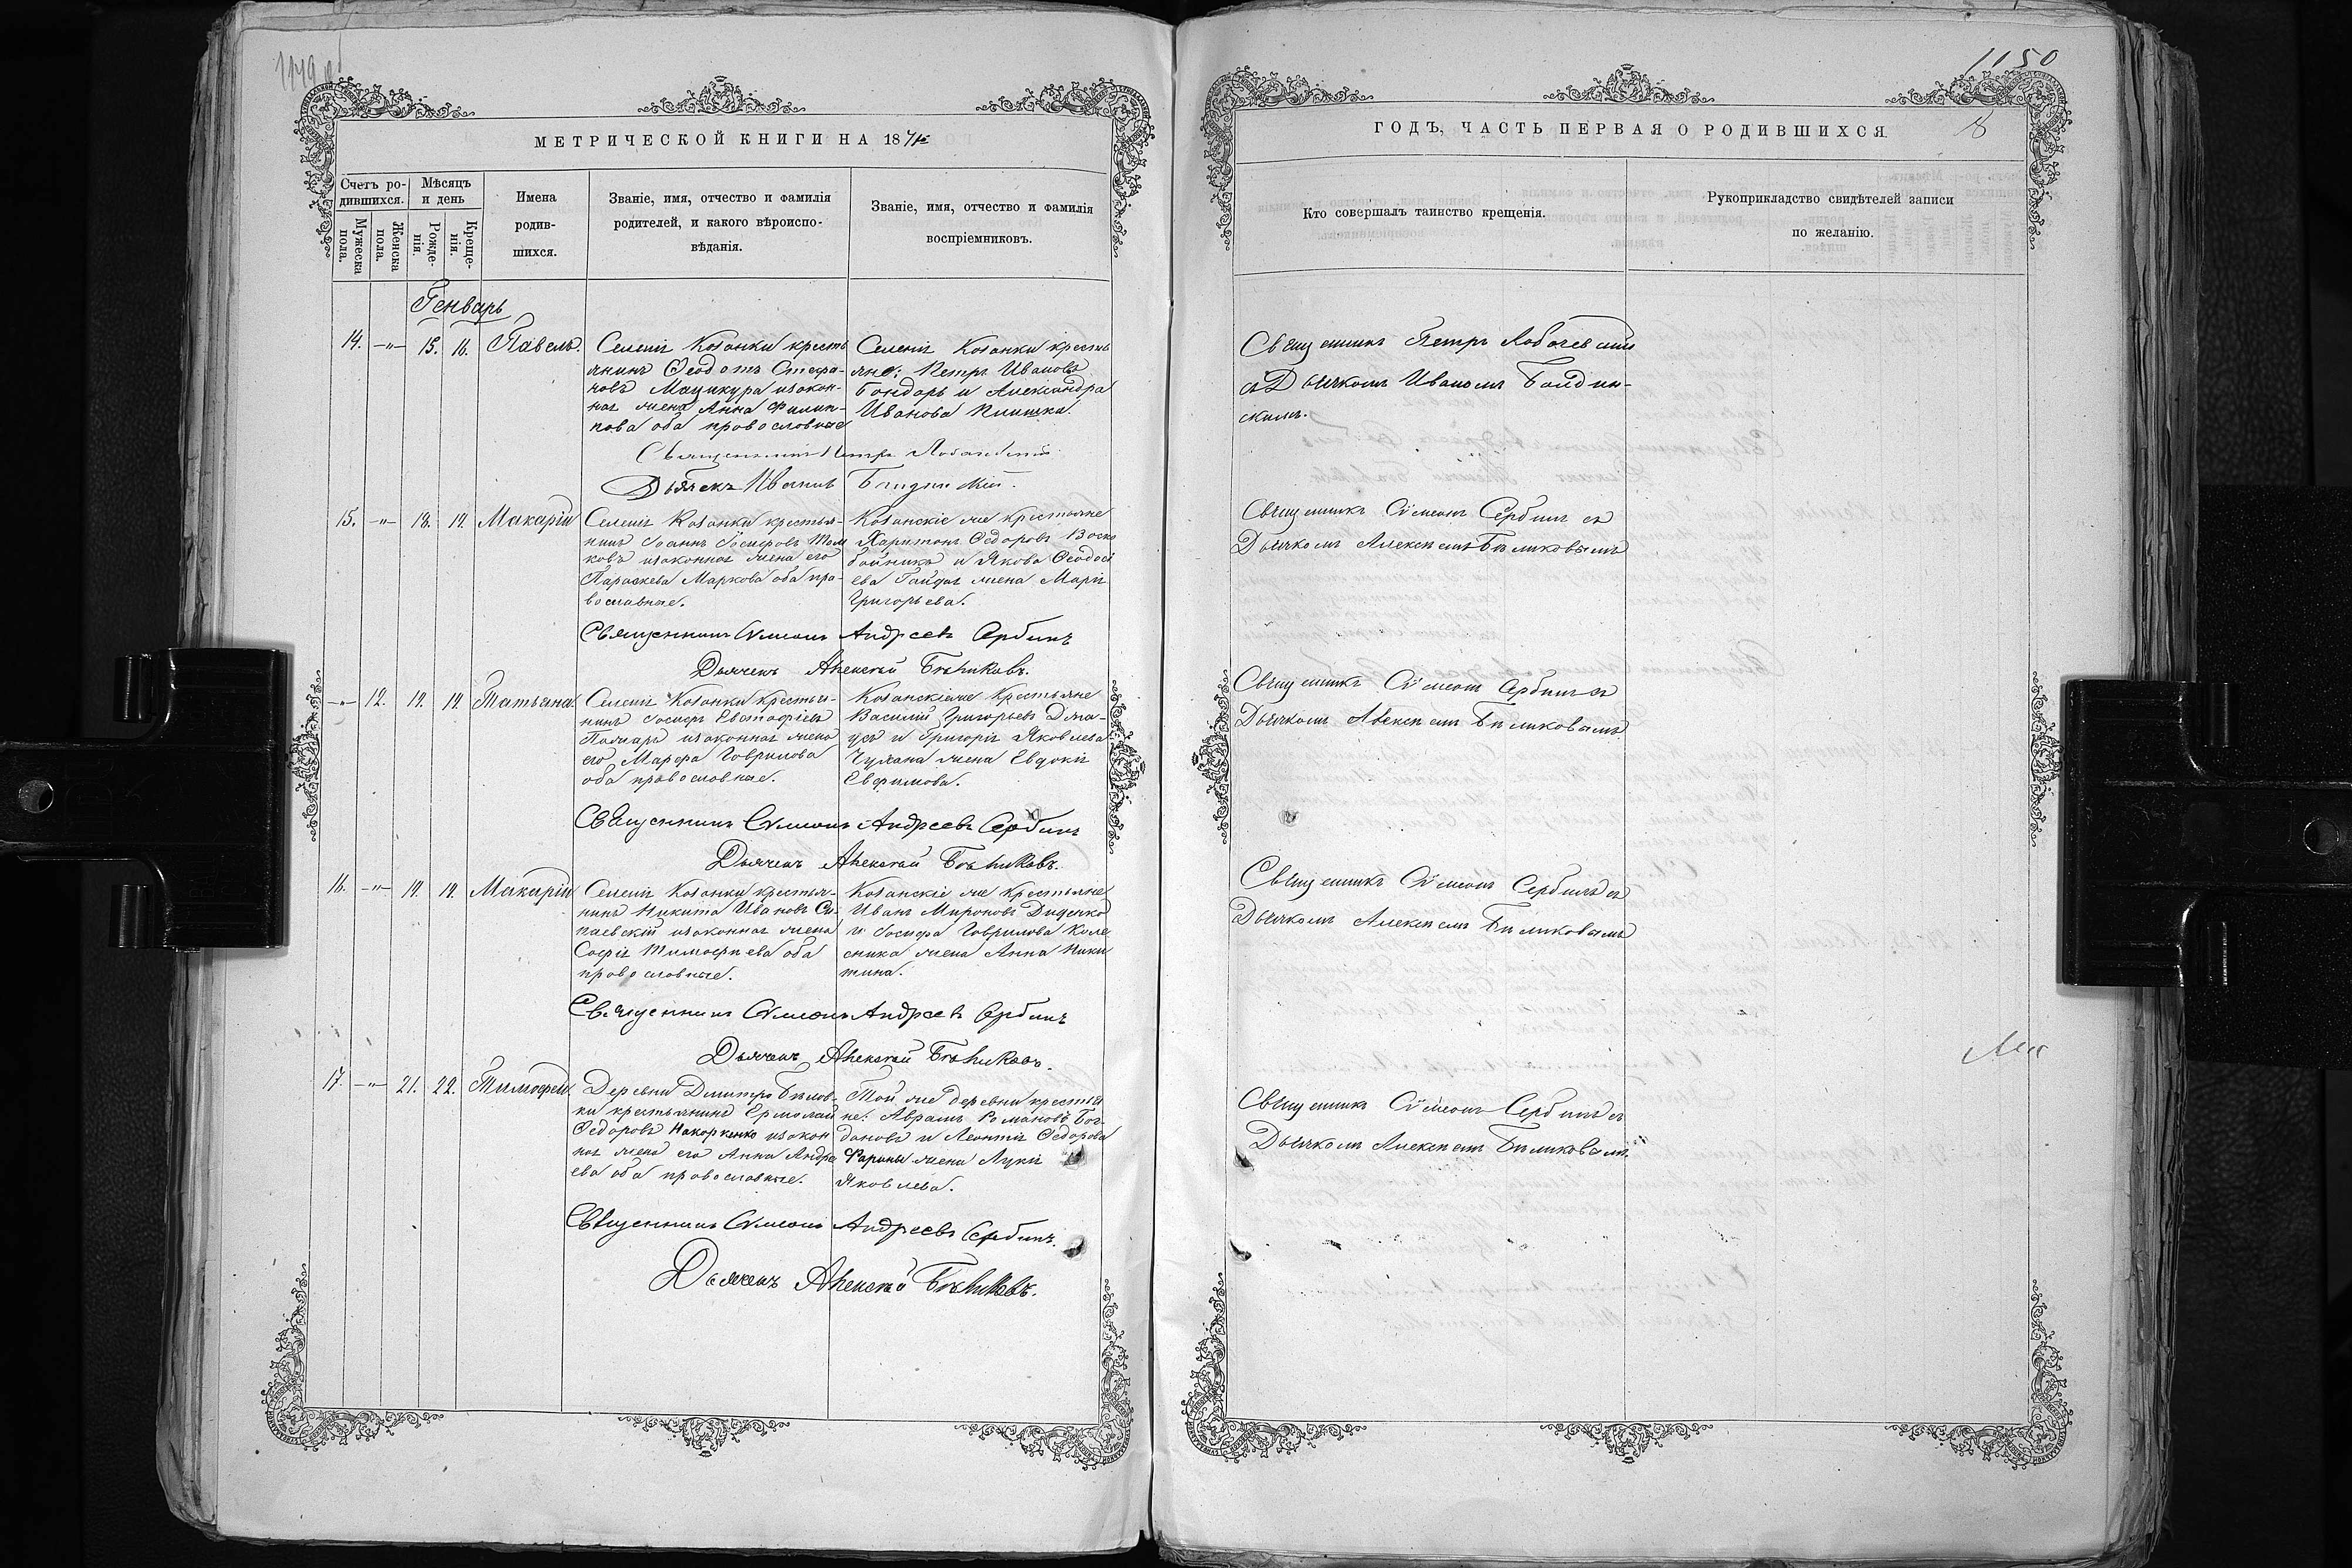 1150
МЕТРИЧЕСКОЙ КНИГИ НА 1874
Счетъ ро-
дившихся.
Мѣсяцъ
и день
Мужеска
пола.
Женска
пола.
Рожде-
нія.
Креще-
нія.
Имена
родив-
шихся.
Званіе, имя, отчество и фамилія
родителей, и какого вѣроиспо-
вѣданія.
Званіе, имя, отчество и фамилія
воспріемниковъ.
Генварь
14. —„— 15. 16. Павелъ.
Селенія Казанки кресть
янинъ Ѳеодотъ Стефа-
новъ Мацикура изакон-
ная жена Анна Филип-
пова оба православные
Селенія Казанки кресть
яне: Петръ Ивановъ
Бондарь и Александра
Иванова
Священникъ Петръ
Дьячекъ Иванъ
15. —„— 18. 19. Макарій
Селенія Казанки крестья-
нинъ Іоаннъ Іосифовъ
ковъ изаконная жена его
Параскева Маркова оба пра-
вославные.
Казанскіе же крестьяне
Харитонъ Ѳедоровъ Воско
бойникъ и Якова Ѳеодосі
ева Гайдая жена Марія
Григорьева.
Священникъ Сѵмеонъ Андреевъ Сербинъ
Дьячекъ Алексѣй Бѣликовъ.
—„— 12. 19. 19. Татьяна.
Селенія Казанки крестья-
нинъ Іосифъ Евстафіевъ
изаконная жена
его Марфа Гаврилова
оба православные.
Казанскіе же крестьяне
Василій Григорьевъ
и Григорія Яковлева
жена Евдокія
Евфимова.
Священникъ Сѵмеонъ Андреевъ Сербинъ
Дьячекъ Алексѣй Бѣликовъ.
16. —„— 19. 19. Макарій
Селенія Казанки крестья-
нинъ Никита Ивановъ Си-
паевскій изаконная жена
Софія Тимофѣева оба
православные.
Казанскіе же крестьяне
Иванъ Мироновъ Диденко
и Іосифа Гаврилова Коле
сника жена Анна Ники
тина.
Священникъ Сѵмеонъ Андреевъ Сербинъ
Дьячекъ Алексѣй Бѣликовъ.
17. —„— 21. 22. Тимофей.
Деревни Дмитро Бѣлов-
ки крестьянинъ Ермолай
Ѳедоровъ Накорженко изакон
ная жена его Анна Андре
ева оба православные.
Той же деревни крестья
не: Аврамъ Романовъ Бог-
дановъ и Леонтія Ѳедорова
жена
Яковлева.
Священникъ Сѵмеонъ Андреевъ Сербинъ.
Дьячекъ Алексѣй Бѣликовъ.
ГОДЪ, ЧАСТЬ ПЕРВАЯ О РОДИВШИХСЯ.
8
Кто совершалъ таинство крещенія.
Рукоприкладство свидѣтелей записи
по желанію.
Священникъ Петръ
съ Дьячкомъ Иваномъ
скимъ.
Священникъ Сѵмеонъ Сербинъ съ
Дьячкомъ Алексѣемъ Бѣликовымъ
Священникъ Сѵмеонъ Сербинъ съ
Дьячкомъ Алексѣемъ Бѣликовымъ
Священникъ Сѵмеонъ Сербинъ съ
Дьячкомъ Алексѣемъ Бѣликовымъ
Священникъ Сѵмеонъ Сербинъ съ
Дьячкомъ Алексѣемъ Бѣликовымъ